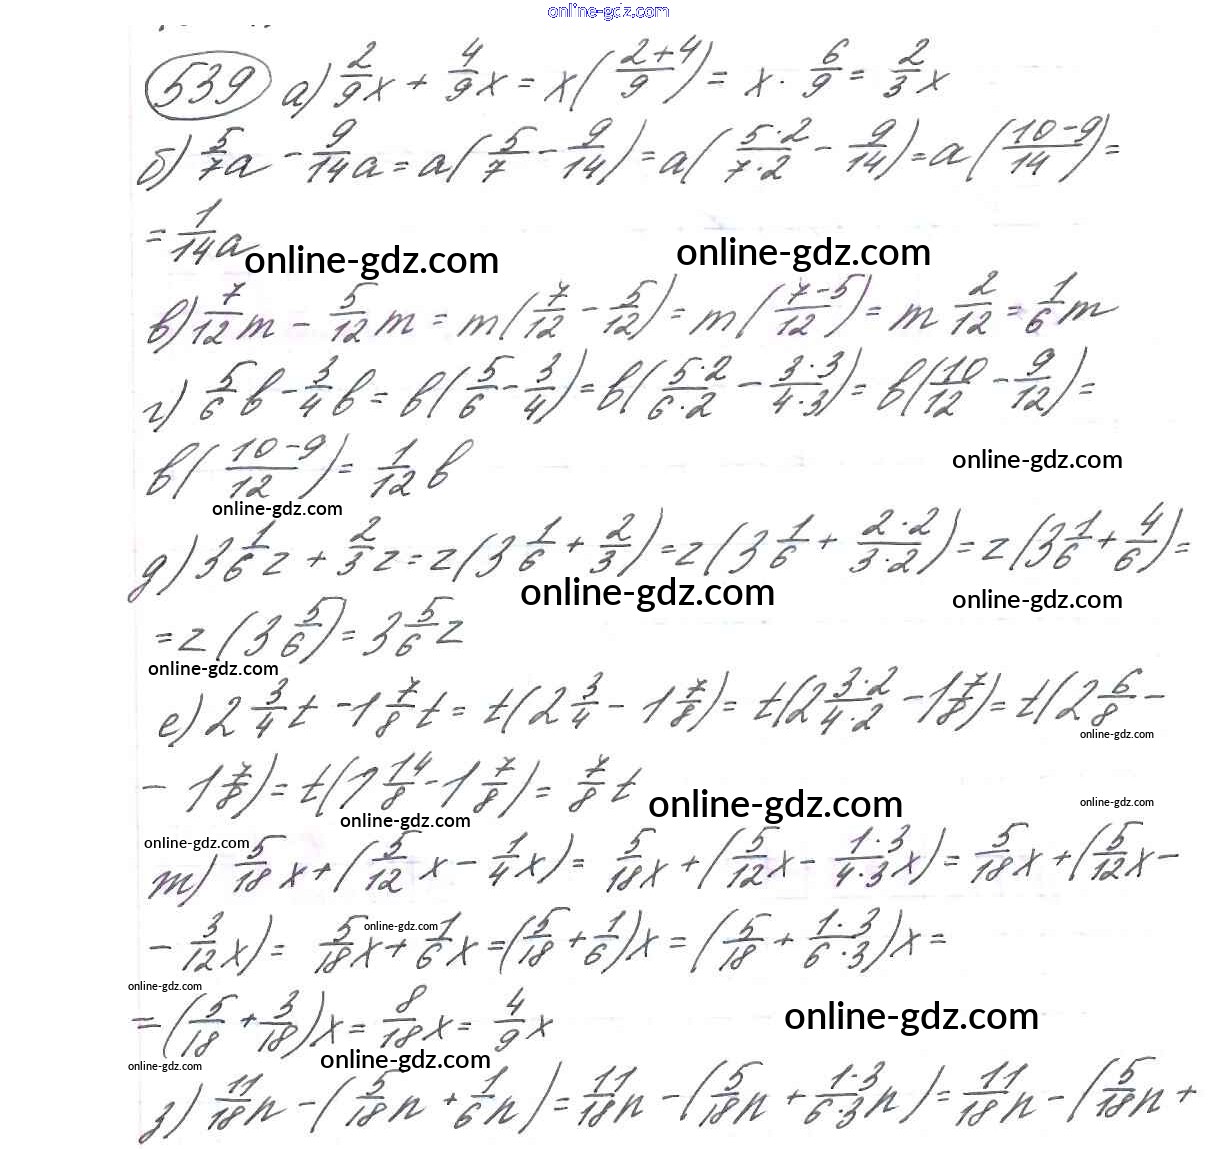 online-gdz.com
539 а) 2/9 x + 4/9 x = x((2+4)/9) = x · 6/9 = 2/3 x
б) 5/7 a − 9/14 a = a(5/7 − 9/14) = a((5·2)/(7·2) − 9/14) = a((10−9)/14) =
= 1/14 a
online-gdz.com online-gdz.com
в) 7/12 m − 5/12 m = m(7/12 − 5/12) = m((7−5)/12) = m 2/12 = 1/6 m
г) 5/6 b − 3/4 b = b(5/6 − 3/4) = b((5·2)/(6·2) − (3·3)/(4·3)) = b(10/12 − 9/12) =
b((10−9)/12) = 1/12 b
online-gdz.com
online-gdz.com
д) 3 1/6 z + 2/3 z = z(3 1/6 + 2/3) = z(3 1/6 + (2·2)/(3·2)) = z(3 1/6 + 4/6) =
online-gdz.com online-gdz.com
= z(3 5/6) = 3 5/6 z
online-gdz.com
е) 2 3/4 t − 1 7/8 t = t(2 3/4 − 1 7/8) = t(2 (3·2)/(4·2) − 1 7/8) = t(2 6/8 −
online-gdz.com
− 1 7/8) = t(1 14/8 − 1 7/8) = 7/8 t
online-gdz.com online-gdz.com
online-gdz.com
online-gdz.com
т) 5/18 x + (5/12 x − 1/4 x) = 5/18 x + (5/12 x − (1·3)/(4·3) x) = 5/18 x + (5/12 x −
online-gdz.com
− 3/12 x) = 5/18 x + 1/6 x = (5/18 + 1/6)x = (5/18 + (1·3)/(6·3))x =
online-gdz.com
= (5/18 + 3/18)x = 8/18 x = 4/9 x
online-gdz.com
online-gdz.com
online-gdz.com
з) 11/18 n − (5/18 n + 1/6 n) = 11/18 n − (5/18 n + (1·3)/(6·3) n) = 11/18 n − (5/18 n +